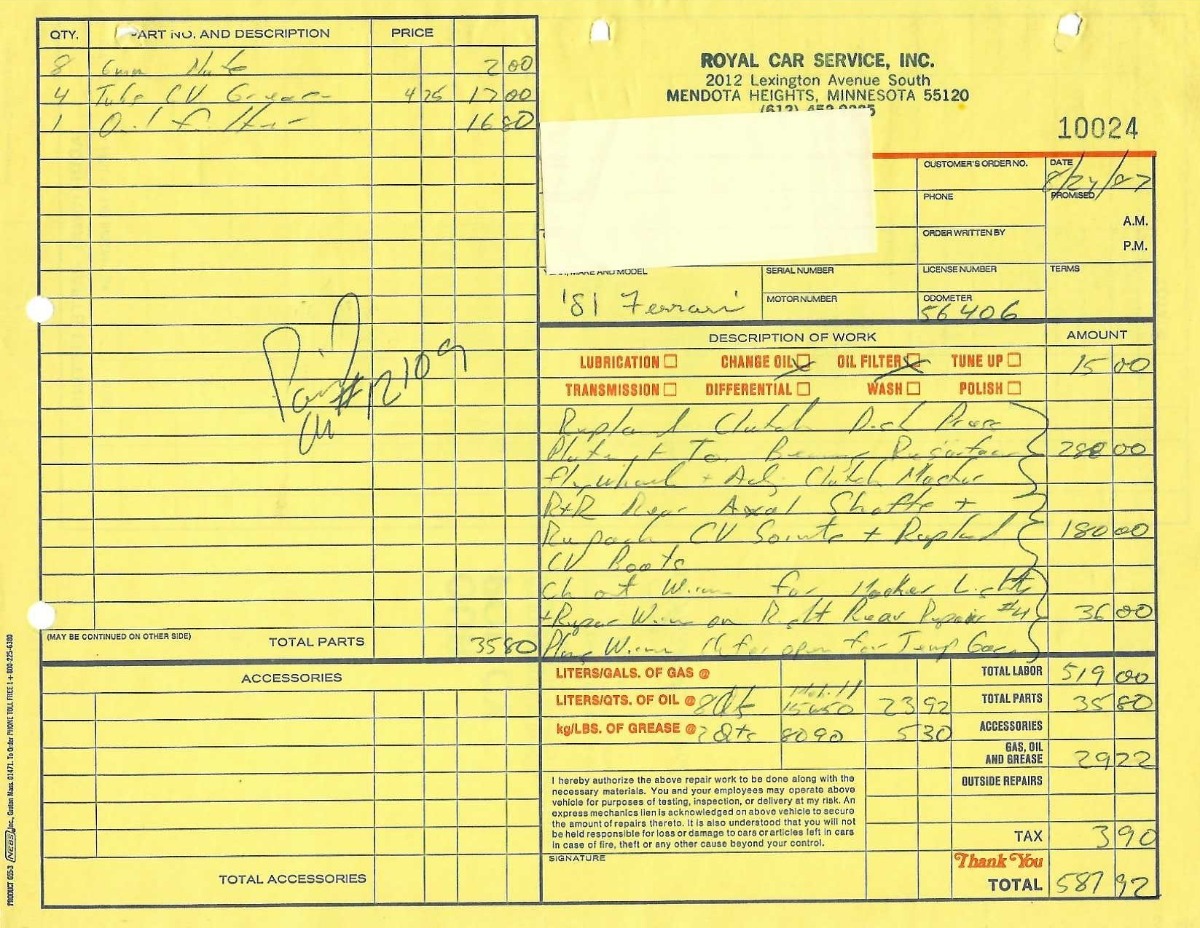 QTY. PART NO. AND DESCRIPTION PRICE
8 6mm Nuts 2 00
4 Tube CV Grease 4 25 17 00
1 Oil filter 16 80
Paid
CK #12109
(MAY BE CONTINUED ON OTHER SIDE) TOTAL PARTS 35 80
ACCESSORIES
TOTAL ACCESSORIES
PRODUCT 655-3 NEBS Inc., Groton Mass. 01471. To Order PHONE TOLL FREE 1 + 800-225-6380
ROYAL CAR SERVICE, INC.
2012 Lexington Avenue South
MENDOTA HEIGHTS, MINNESOTA 55120
(612)
10024
CUSTOMER'S ORDER NO. DATE 8/24/87
PHONE PROMISED
A.M.
ORDER WRITTEN BY P.M.
YEAR, MAKE AND MODEL SERIAL NUMBER LICENSE NUMBER TERMS
'81 Ferrari MOTOR NUMBER ODOMETER 56406
DESCRIPTION OF WORK AMOUNT
LUBRICATION CHANGE OIL OIL FILTER TUNE UP 15 00
TRANSMISSION DIFFERENTIAL WASH POLISH
Clutch Disk
288 00
Flywheel + Adj Clutch Master
R+R Rear Axal Shafts +
CV Joints + 180 00
CV Boots
for Marker Lights
on Right Rear Repair #4 36 00
Plug Wire open for Temp
LITERS/GALS. OF GAS @ TOTAL LABOR 519 00
LITERS/QTS. OF OIL @ 8 Qts 15W50 23 92 TOTAL PARTS 35 80
kg/LBS. OF GREASE @ 2 Qts 8090 5 30 ACCESSORIES
GAS, OIL AND GREASE 29 22
OUTSIDE REPAIRS
I hereby authorize the above repair work to be done along with the
necessary materials. You and your employees may operate above
vehicle for purposes of testing, inspection, or delivery at my risk. An
express mechanics lien is acknowledged on above vehicle to secure
the amount of repairs thereto. It is also understood that you will not
be held responsible for loss or damage to cars or articles left in cars
in case of fire, theft or any other cause beyond your control.
TAX 3 90
SIGNATURE
Thank You
TOTAL 587 92